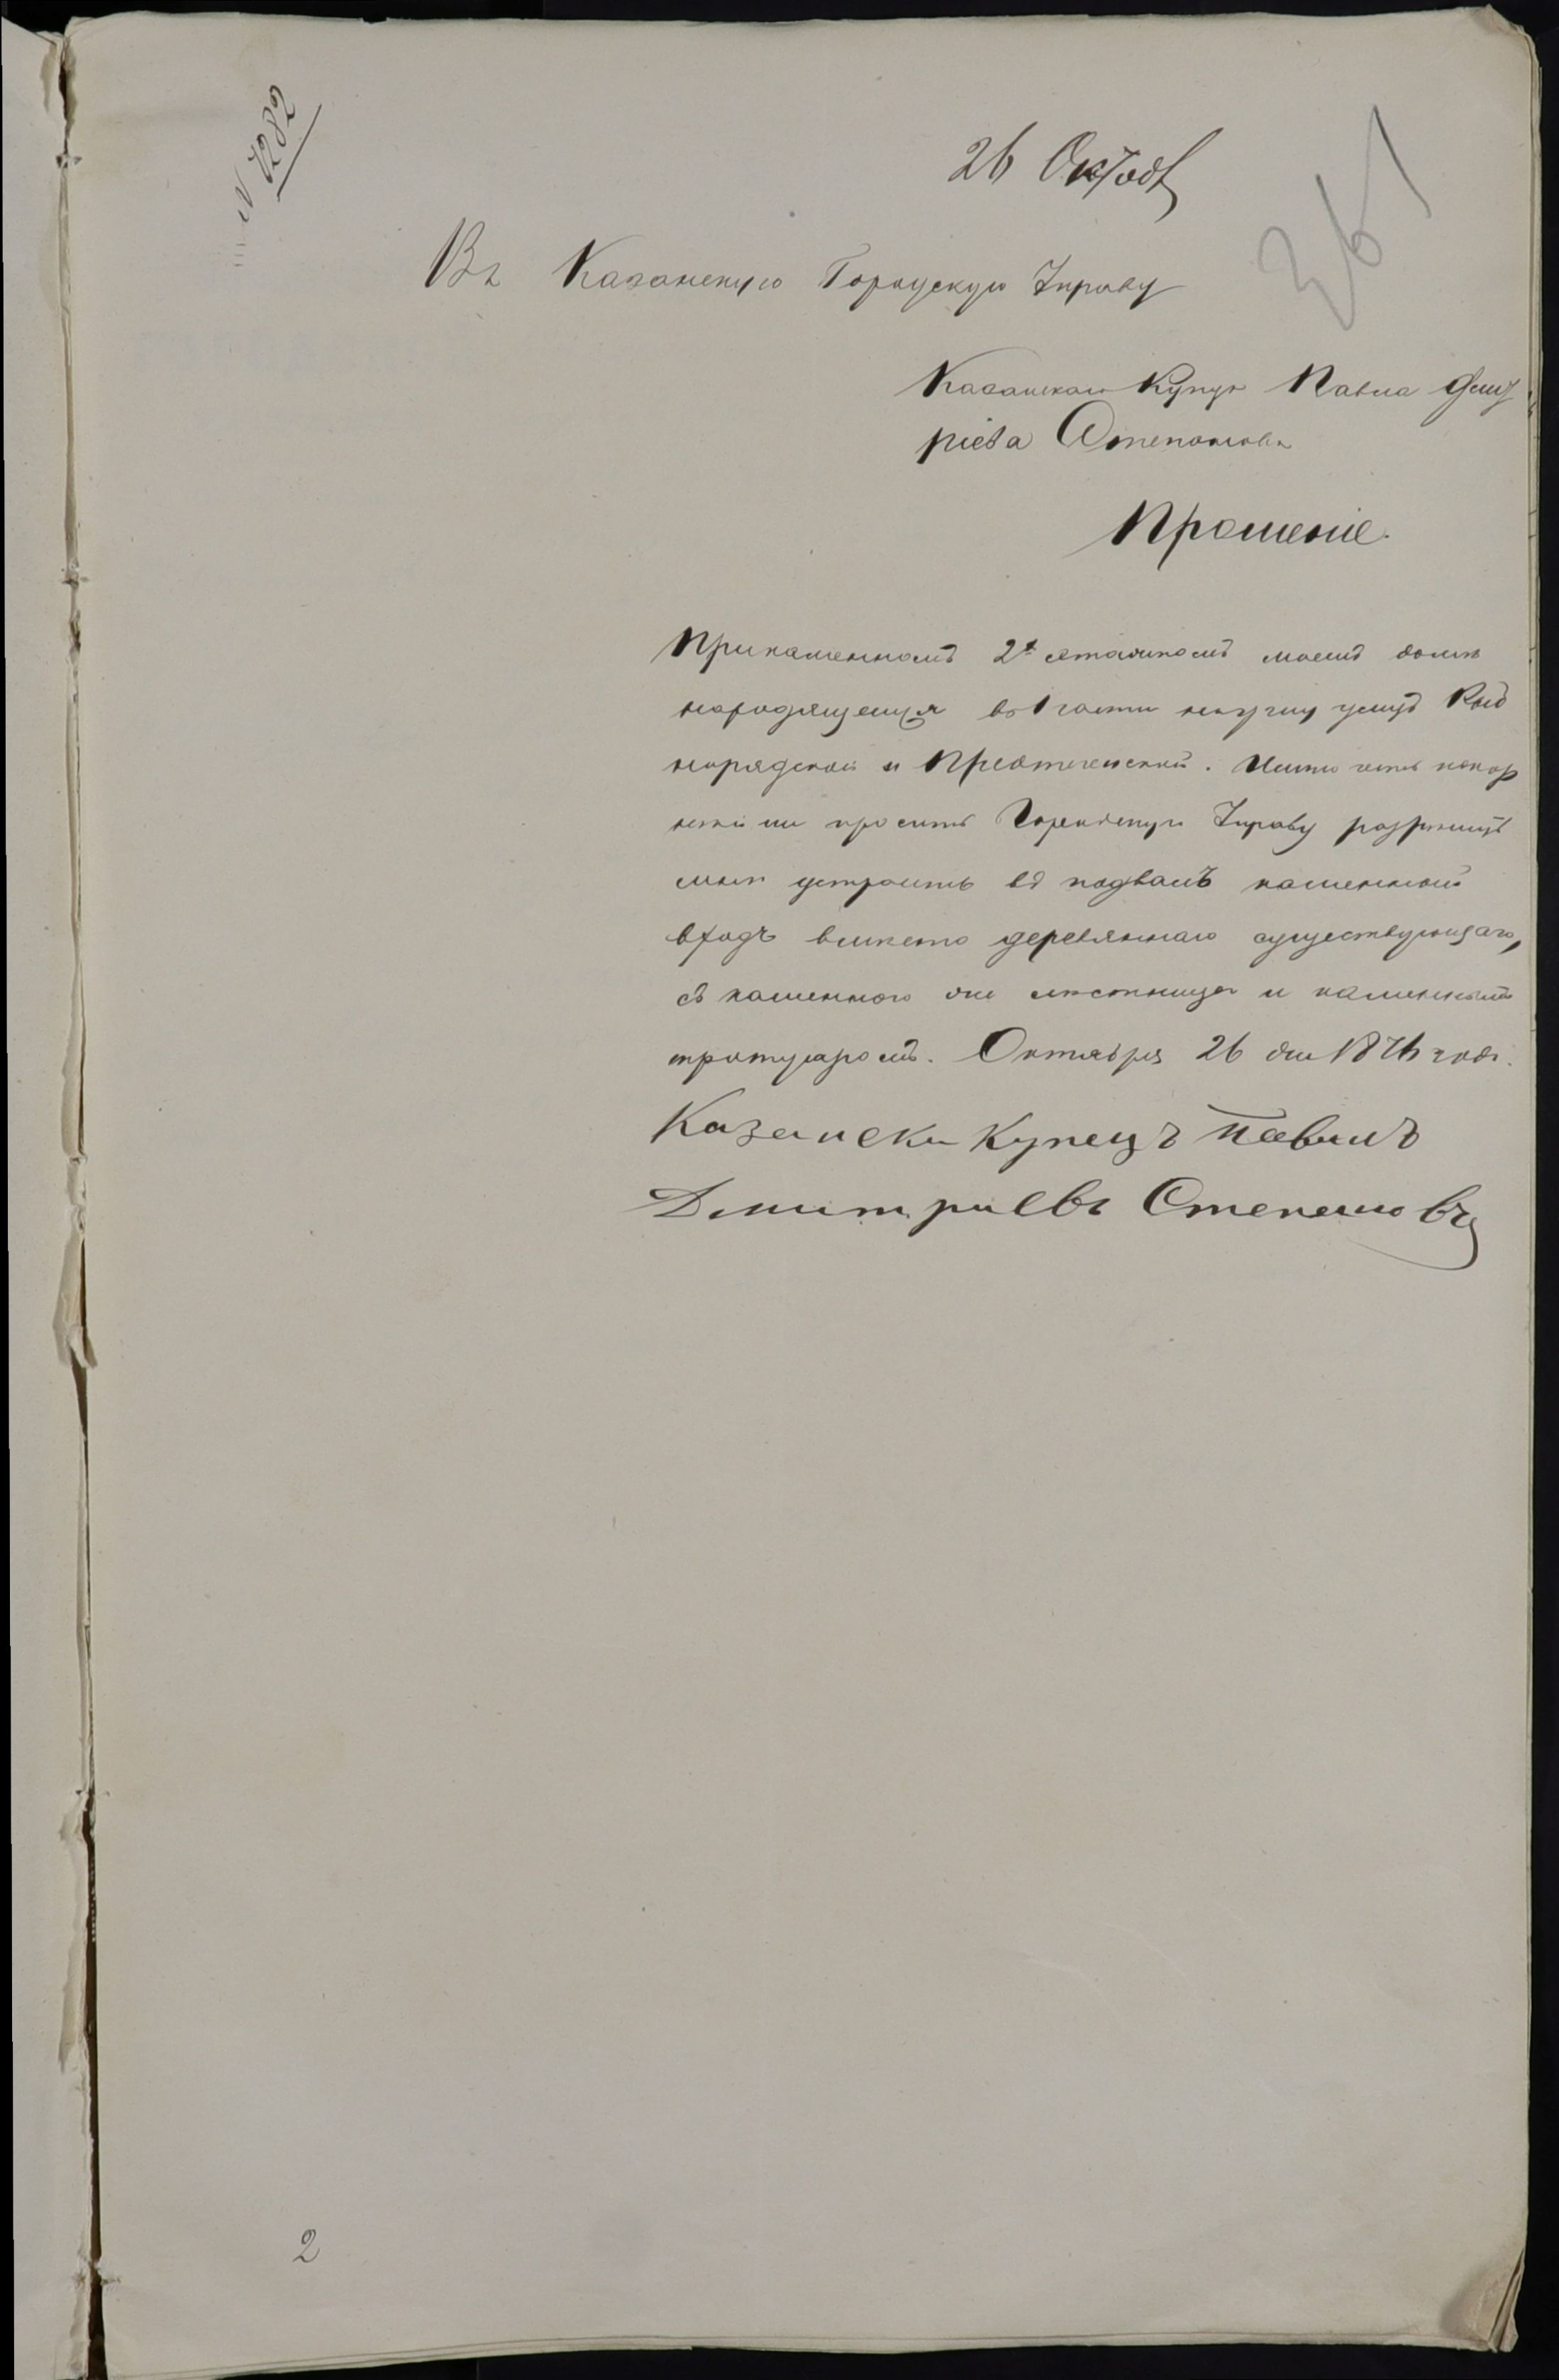 N 7282
26 Октоб
261
Въ Казанскую Городскую Управу
Казанскаго Купца Павла Дмит
ріева Степанова
Прошеніе.
При каменномъ 2х етажномъ моемъ доме
находящемся въ 1 части на углу улицъ Рыб
норядской и Предтеченской. Имею честь покор
нейше просить Городскую Управу разрешить
мне устроить въ подвалъ каменный
входъ вместо деревяннаго существующаго,
съ каменною лестницею и каменнымъ
тротуаромъ. Октября 26 дня 1876 года.
Казански Купецъ Павилъ
Дмитриевъ Степановъ
2